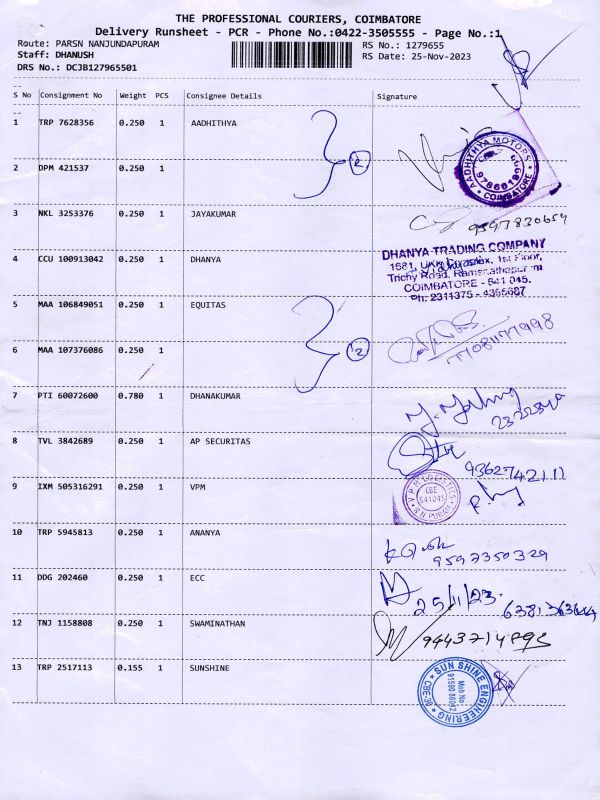 THE PROFESSIONAL COURIERS, COIMBATORE
Delivery Runsheet - PCR - Phone No.:0422-3505555 - Page No.:1
Route: PARSN NANJUNDAPURAM
RS No.: 1279655
Staff: DHANUSH
RS Date: 25-Nov-2023
DRS No.: DCJB127965501
S No Consignment No Weight PCS Consignee Details Signature
1 TRP 7628356 0.250 1 AADHITHYA
AADHITHYA MOTORS
COIMBATORE
2 DPM 421537 0.250 1
2
3 NKL 3253376 0.250 1 JAYAKUMAR
9597830654
4 CCU 100913042 0.250 1 DHANYA
DHANYA TRADING COMPANY
1681, UKK Complex, 1st Floor,
Trichy Road, Ramanathapuram
COIMBATORE - 641 045.
Ph: 2311375 - 4355687
5 MAA 106849051 0.250 1 EQUITAS
7708177998
6 MAA 107376086 0.250 1
2
7 PTI 60072600 0.780 1 DHANAKUMAR
8 TVL 3842689 0.250 1 AP SECURITAS
9362742111
9 IXM 505316291 0.250 1 VPM
LOGISTICS
CBE
641045
10 TRP 5945813 0.250 1 ANANYA
9597350329
11 DDG 202460 0.250 1 ECC
25/11/23
12 TNJ 1158808 0.250 1 SWAMINATHAN
13 TRP 2517113 0.155 1 SUNSHINE
SUN SHINE ENGINEERING
CBE-38
Mob No:
91590 38042